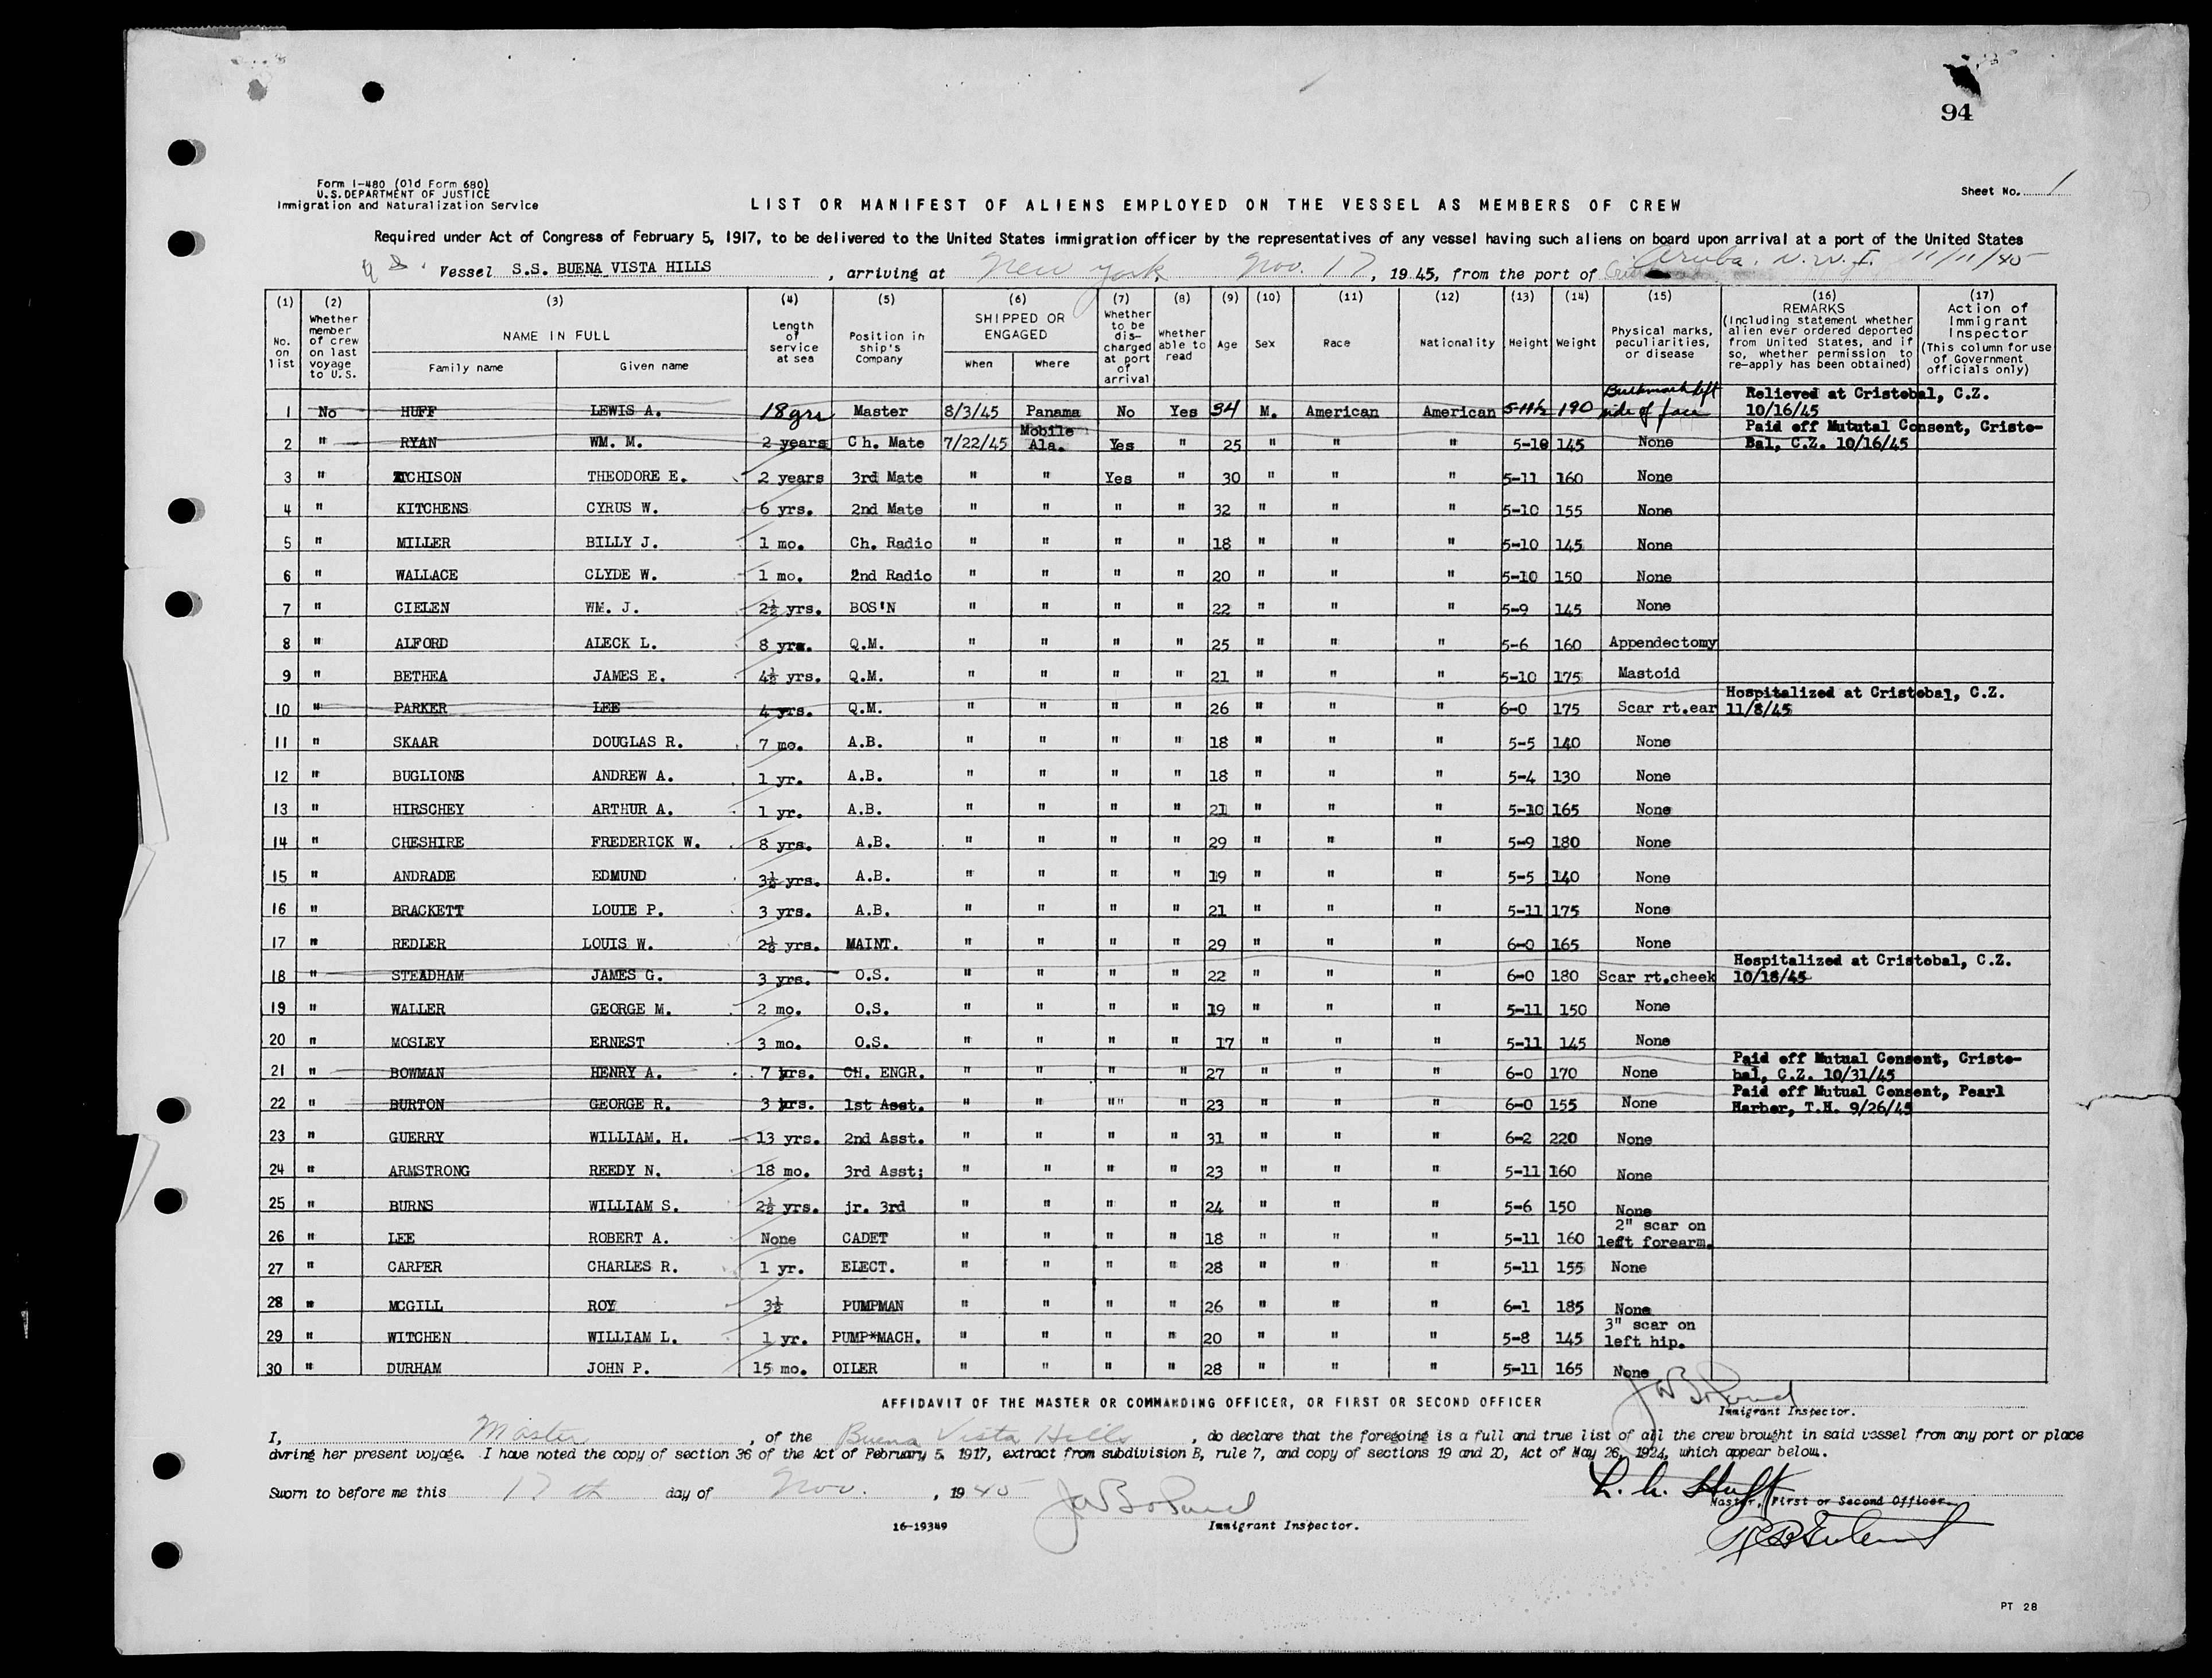 94
Form I-480 (Old Form 680)
U.S. DEPARTMENT OF JUSTICE
Immigration and Naturalization Service
Sheet No. 1
LIST OR MANIFEST OF ALIENS EMPLOYED ON THE VESSEL AS MEMBERS OF CREW
Required under Act of Congress of February 5, 1917, to be delivered to the United States immigration officer by the representatives of any vessel having such aliens on board upon arrival at a port of the United States
Vessel S.S. BUENA VISTA HILLS, arriving at New York, Nov. 17, 1945, from the port of Aruba. N.W.I. 11/11/45
(1) (2) (3) (4) (5) (6) (7) (8) (9) (10) (11) (12) (13) (14) (15) (16) (17)
No. on list
Whether member of crew on last voyage to U.S.
NAME IN FULL
Family name
Given name
Length of service at sea
Position in ship's Company
SHIPPED OR ENGAGED
When
Where
Whether to be discharged at port of arrival
Whether able to read
Age
Sex
Race
Nationality
Height
Weight
Physical marks, peculiarities, or disease
REMARKS (Including statement whether alien ever ordered deported from United States, and if so, whether permission to re-apply has been obtained)
Action of Immigrant Inspector (This column for use of Government officials only)
1 No HUFF LEWIS A. 18 yrs Master 8/3/45 Panama No Yes 34 M. American American 5-11½ 190 Birthmark left side of face Relieved at Cristobal, C.Z. 10/16/45
2 " RYAN WM. M. 2 years Ch. Mate 7/22/45 Mobile Ala. Yes " 25 " " " 5-10 145 None Paid off Mututal Consent, Cristo-Bal, C.Z. 10/16/45
3 " ATCHISON THEODORE E. 2 years 3rd Mate " " Yes " 30 " " " 5-11 160 None
4 " KITCHENS CYRUS W. 6 yrs. 2nd Mate " " " " 32 " " " 5-10 155 None
5 " MILLER BILLY J. 1 mo. Ch. Radio " " " " 18 " " " 5-10 145 None
6 " WALLACE CLYDE W. 1 mo. 2nd Radio " " " " 20 " " " 5-10 150 None
7 " CIELEN WM. J. 2½ yrs. BOS'N " " " " 22 " " " 5-9 145 None
8 " ALFORD ALECK L. 8 yrs. Q.M. " " " " 25 " " " 5-6 160 Appendectomy
9 " BETHEA JAMES E. 4½ yrs. Q.M. " " " " 21 " " " 5-10 175 Mastoid
10 " PARKER LEE 4 yrs. Q.M. " " " " 26 " " " 6-0 175 Scar rt.ear Hospitalized at Cristobal, C.Z. 11/8/45
11 " SKAAR DOUGLAS R. 7 mo. A.B. " " " " 18 " " " 5-5 140 None
12 " BUGLIONE ANDREW A. 1 yr. A.B. " " " " 18 " " " 5-4 130 None
13 " HIRSCHEY ARTHUR A. 1 yr. A.B. " " " " 21 " " " 5-10 165 None
14 " CHESHIRE FREDERICK W. 8 yrs. A.B. " " " " 29 " " " 5-9 180 None
15 " ANDRADE EDMUND 3½ yrs. A.B. " " " " 19 " " " 5-5 140 None
16 " BRACKETT LOUIE P. 3 yrs. A.B. " " " " 21 " " " 5-11 175 None
17 " REDLER LOUIS W. 2½ yrs. MAINT. " " " " 29 " " " 6-0 165 None
18 " STEADHAM JAMES G. 3 yrs. O.S. " " " " 22 " " " 6-0 180 Scar rt.cheek Hospitalized at Cristobal, C.Z. 10/18/45
19 " WALLER GEORGE M. 2 mo. O.S. " " " " 19 " " " 5-11 150 None
20 " MOSLEY ERNEST 3 mo. O.S. " " " " 17 " " " 5-11 145 None
21 " BOWMAN HENRY A. 7 yrs. CH. ENGR. " " " " 27 " " " 6-0 170 None Paid off Mutual Consent, Cristo-bal, C.Z. 10/31/45
22 " BURTON GEORGE R. 3 yrs. 1st Asst. " " "" " 23 " " " 6-0 155 None Paid off Mutual Consent, Pearl Harbor, T.H. 9/26/45
23 " GUERRY WILLIAM. H. 13 yrs. 2nd Asst. " " " " 31 " " " 6-2 220 None
24 " ARMSTRONG REEDY N. 18 mo. 3rd Asst; " " " " 23 " " " 5-11 160 None
25 " BURNS WILLIAM S. 2½ yrs. jr. 3rd " " " " 24 " " " 5-6 150 None
26 " LEE ROBERT A. None CADET " " " " 18 " " " 5-11 160 2" scar on left forearm.
27 " CARPER CHARLES R. 1 yr. ELECT. " " " " 28 " " " 5-11 155 None
28 " MCGILL ROY 3½ PUMPMAN " " " " 26 " " " 6-1 185 None
29 " WITCHEN WILLIAM L. 1 yr. PUMP*MACH. " " " " 20 " " " 5-8 145 3" scar on left hip.
30 " DURHAM JOHN P. 15 mo. OILER " " " " 28 " " " 5-11 165 None
AFFIDAVIT OF THE MASTER OR COMMANDING OFFICER, OR FIRST OR SECOND OFFICER
Immigrant Inspector.
I, Master, of the Buena Vista Hills, do declare that the foregoing is a full and true list of all the crew brought in said vessel from any port or place
during her present voyage. I have noted the copy of section 36 of the Act of February 5, 1917, extract from subdivision B, rule 7, and copy of sections 19 and 20, Act of May 26, 1924, which appear below.
Sworn to before me this 17th day of Nov., 1945
L. A. Huff
Master, First or Second Officer.
16-19349
Immigrant Inspector.
PT 28